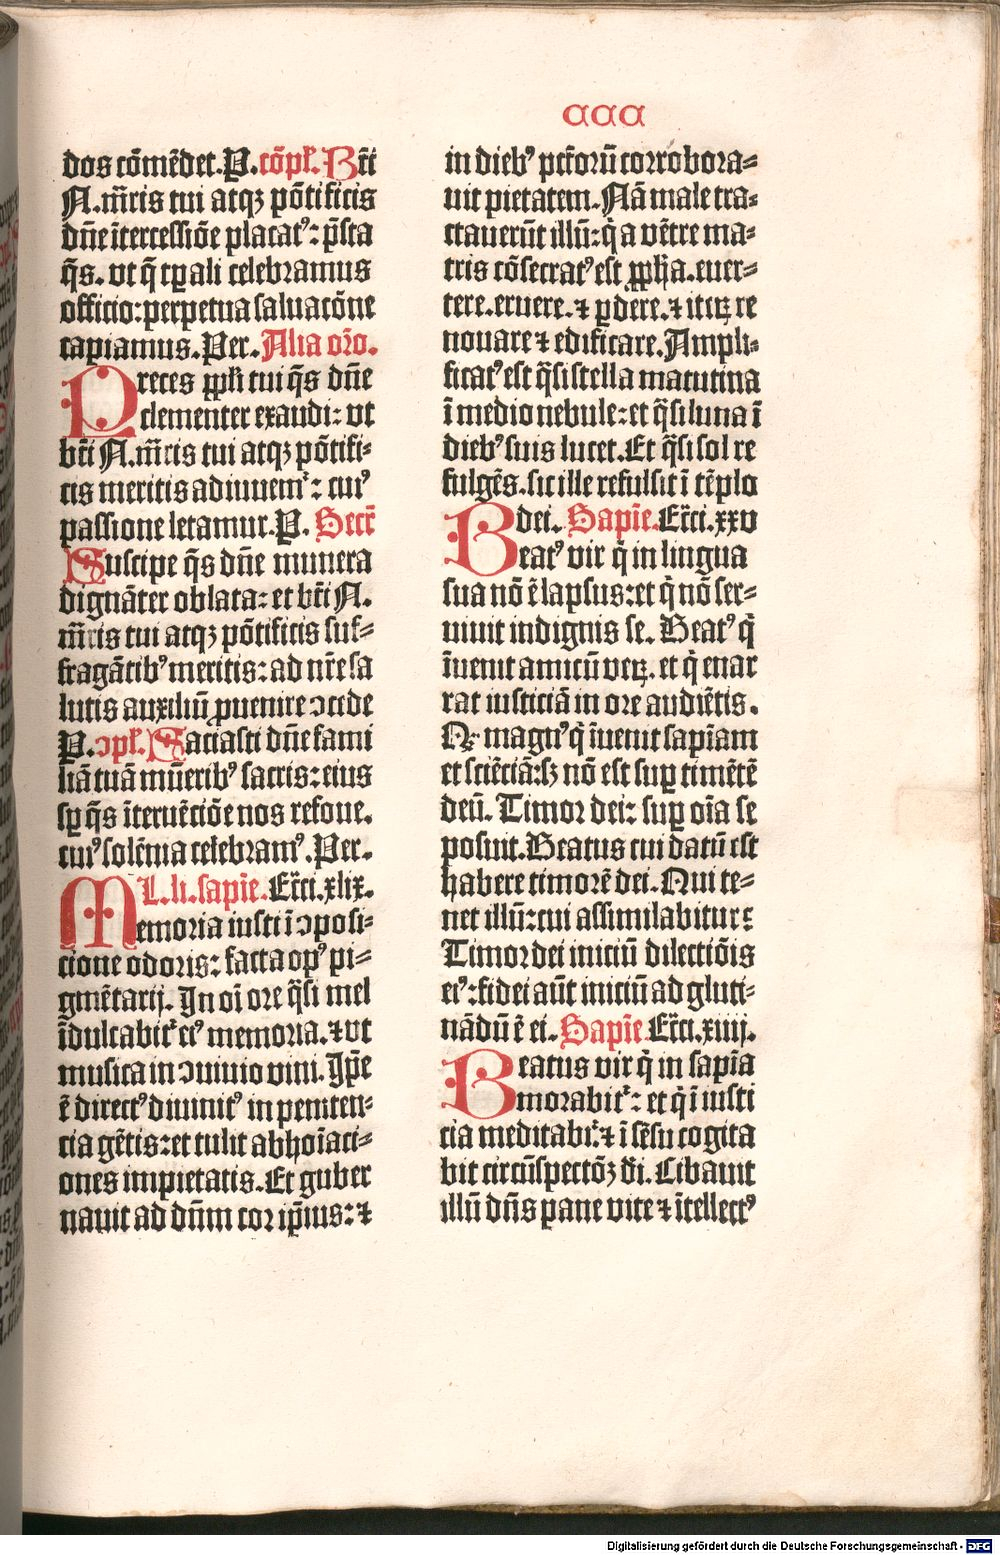 ααα
dos cōmēdet. P. cōpl̄. Bt̄i
N. m̄ris tui atqꝫ pōtificis
dn̄e ītercessiōe placatꝰ: p̄sta
q̄s. vt q̄ tꝑali celebramus
officio: perpetua saluatōne
capiamus. Per. Alia or̄o.
Preces ppl̄i tui q̄s dn̄e
clementer exaudi: vt
bt̄i N. m̄ris tui atqꝫ pōtifi⸗
cis meritis adiuuemr̄: cuiꝰ
passione letamur. P. Secr̄
Suscipe q̄s dn̄e munera
dignāter oblata: et bt̄i N.
m̄ris tui atqꝫ pōtificis suf⸗
fragātibꝰ meritis: ad nr̄e sa
lutis auxiliū ꝓuenire ↄcede
P. ↄpl̄. Saciasti dn̄e fami
liā tuā mūeribꝰ sacris: eius
sꝑ q̄s īteruētiōe nos refoue.
cuiꝰ solēnia celebramꝰ. Per.
L. li. sapīe. Ecc̄i. xlix.
Memoria iusti ī ↄposi⸗
cione odoris: facta opꝰ pi⸗
gmētarij. In oī ore q̄si mel
īdulcabitr̄ eiꝰ memoria. ⁊ vt
musica in ↄuiuio vini. Ip̄e
ē directꝰ diuinitꝰ in peniten⸗
cia gētis: et tulit abhoīaci⸗
ones impietatis. Et guber
nauit ad dn̄m cor ip̄ius: ⁊
in diebꝰ pct̄orū corrobora⸗
uit pietatem. Nā male tra⸗
ctauerūt illū: q̇ a vētre ma⸗
tris cōsecratꝰ est ꝓph̄a. euer⸗
tere. eruere. ⁊ ꝑdere. ⁊ iteꝝ re
nouare ⁊ edificare. Ampli⸗
ficatꝰ est q̄si stella matutina
ī medio nebule: et q̄si luna ī
diebꝰ suis lucet. Et q̄si sol re
fulgēs. sic ille refulsit ī tēplo
dei. Sapīe. Ecc̄i. xxv
Beatꝰ vir q̇ in lingua
sua nō ē lapsus: et q̇ nō ser⸗
uiuit indignis se. Beatꝰ q̇
īuenit amicū veꝝ. et q̇ enar
rat iusticiā in ore audiētis.
Qꝫ magnꝰ q̇ īuenit sapīam
et sciēciā: sꝫ nō est suꝑ timētē
deū. Timor dei: suꝑ oīa se
posuit. Beatus cui datū est
habere timorē dei. Qui te⸗
net illū: cui assimilabitur:
Timor dei iniciū dilectiōis
eiꝰ: fidei aūt iniciū ad gluti⸗
nādū ē ei. Sapīe Ecc̄i. xiiij.
Beatus vir q̇ in sapīa
morabitr̄: et q̇ ī iusti
cia meditabr̄: ⁊ ī sēsu cogita
bit circūspectōꝫ d̄i. Cibauit
illū dn̄s pane vite ⁊ ītellectꝰ
Digitalisierung gefördert durch die Deutsche Forschungsgemeinschaft - DFG